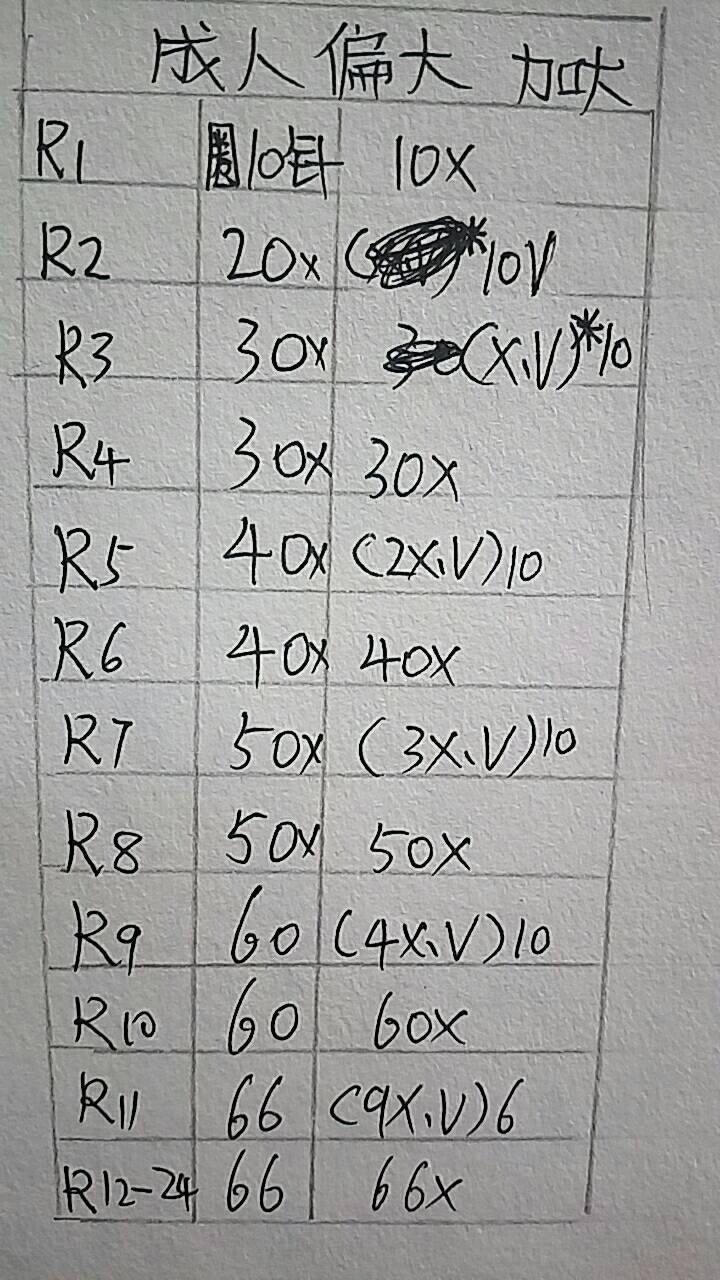 成人偏大 加大
R1 圈10针 10X
R2 20X *10V
R3 30X (X、V)*10
R4 30X 30X
R5 40X (2X、V)10
R6 40X 40X
R7 50X (3X、V)10
R8 50X 50X
R9 60 (4X、V)10
R10 60 60X
R11 66 (9X、V)6
R12-24 66 66X